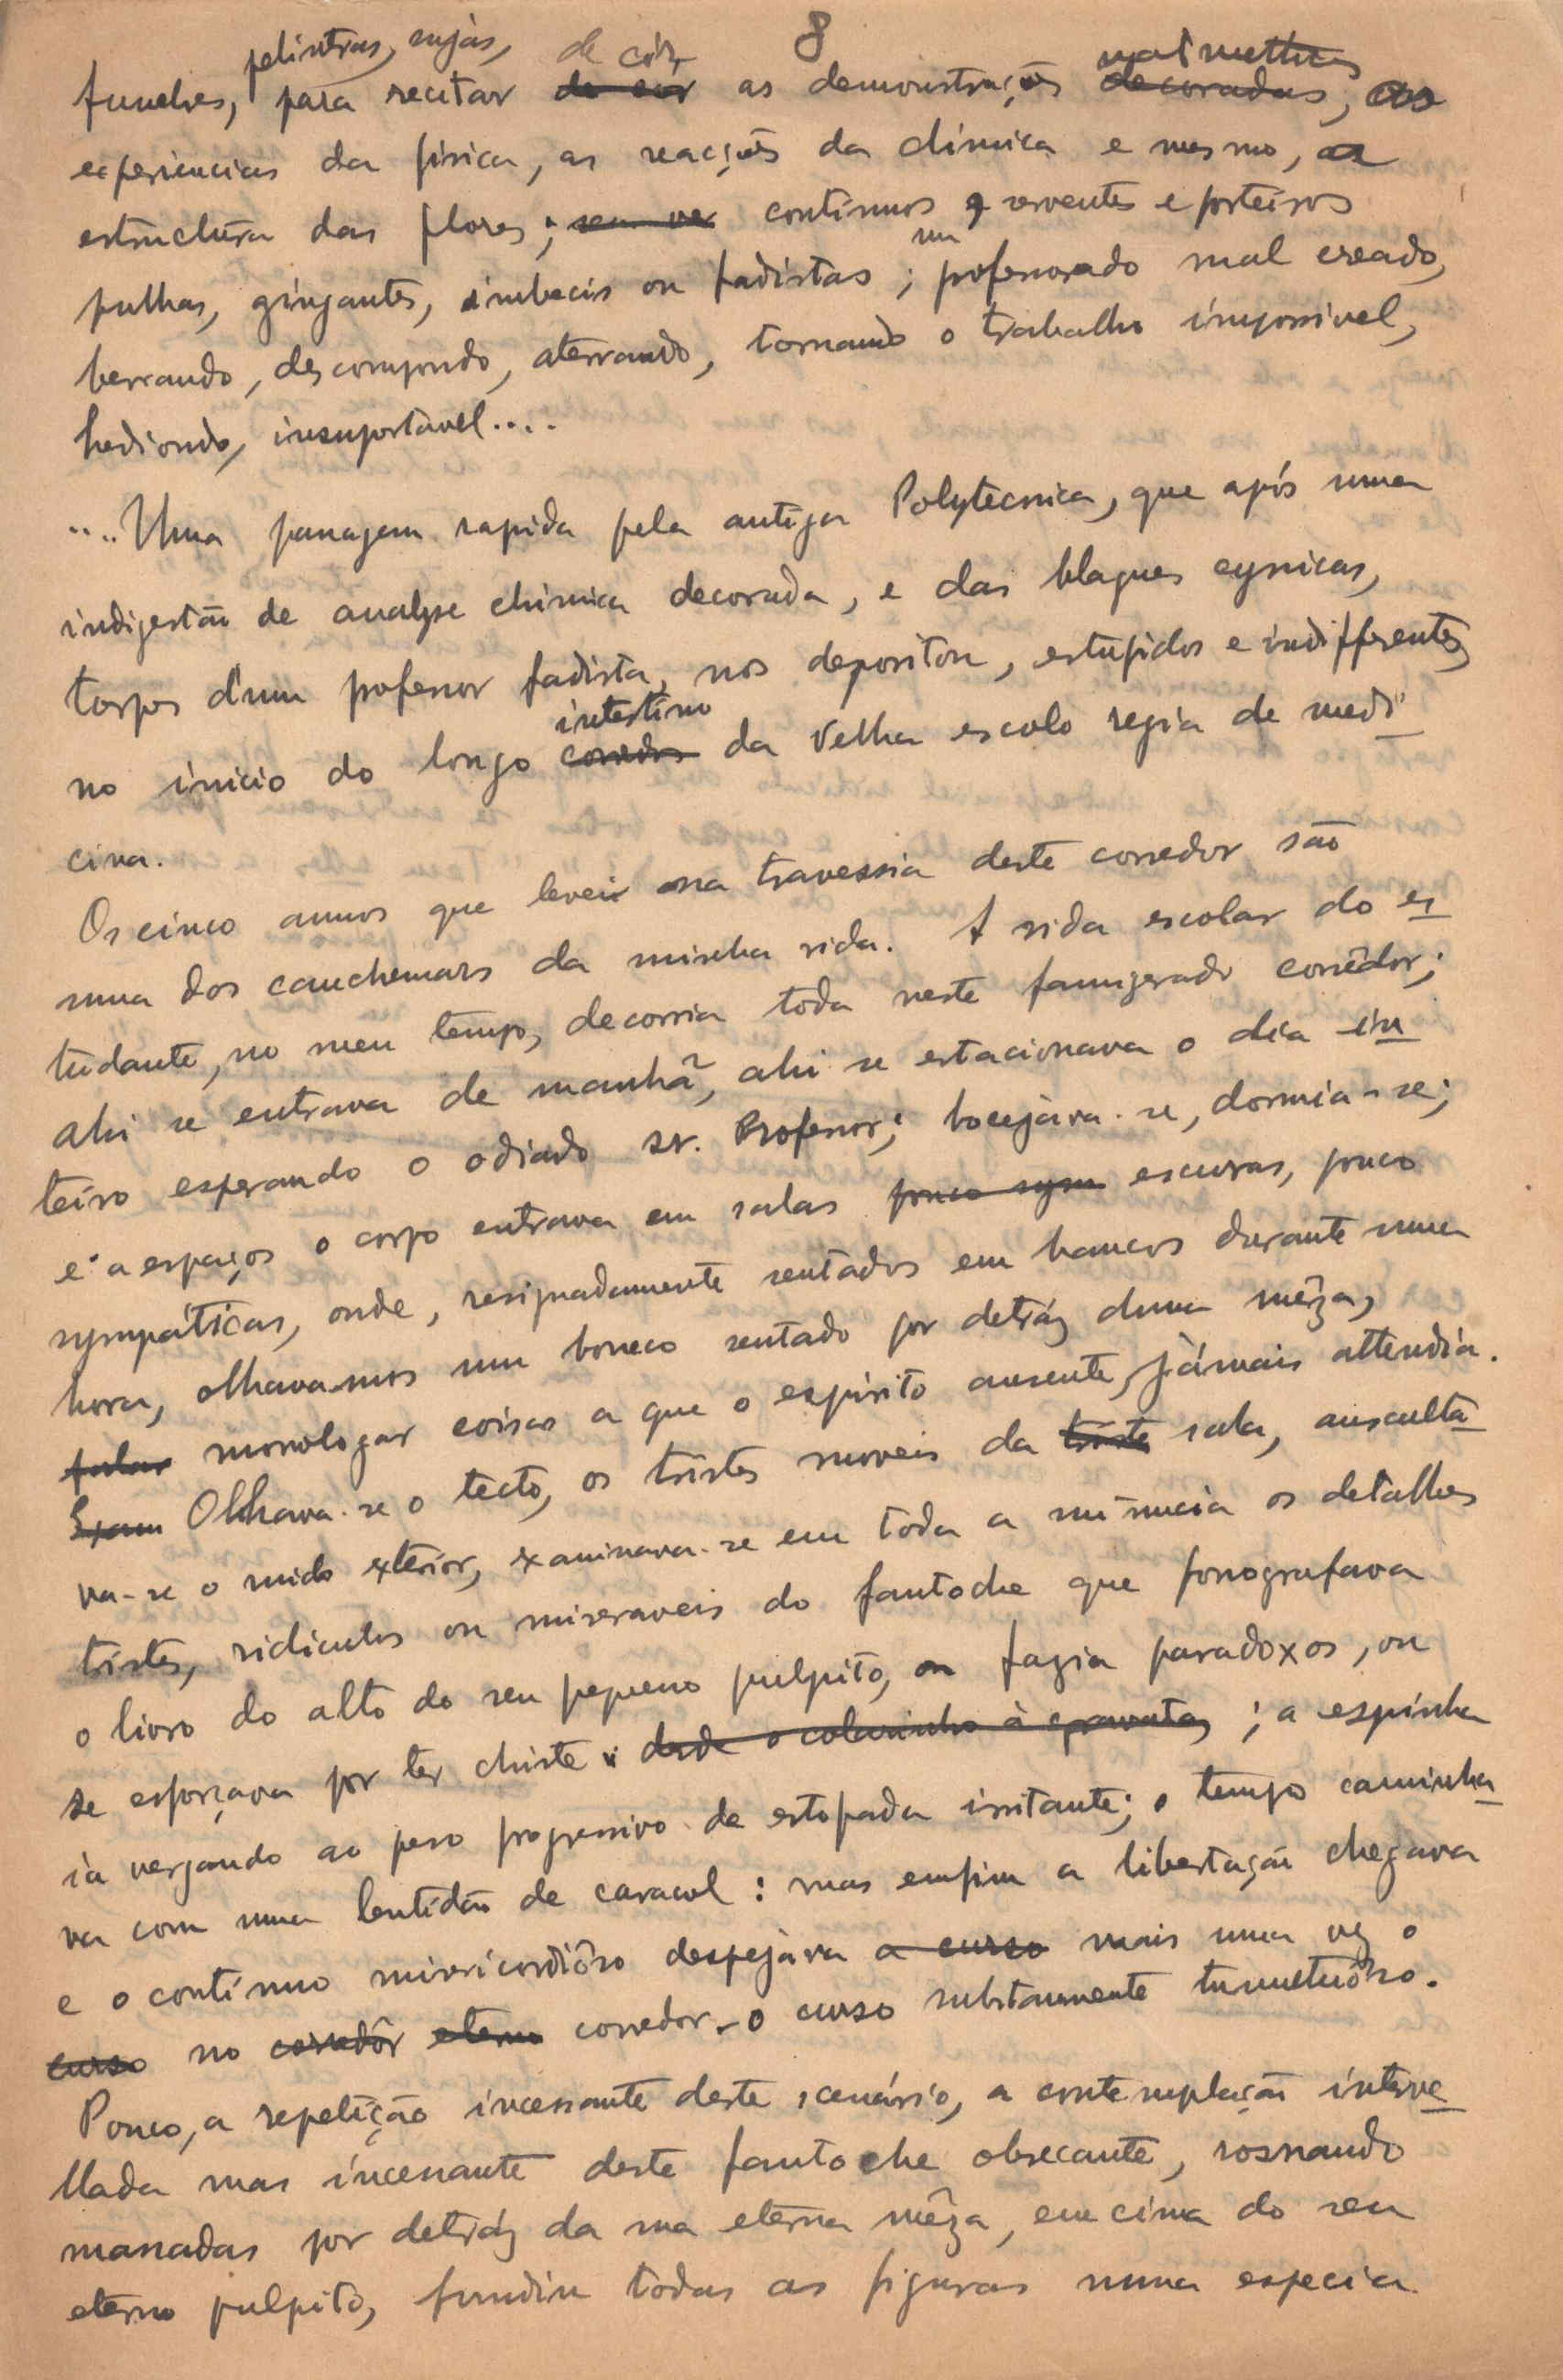 8
pelintras, sujas, de cór, mathmetticas
funebres, para recitar de cór as demonstrações decoradas, as
experiencias da fisica, as reacções da chimica e mesmo, a
estructura das flores; sem ver continuos e serventes e porteiros
pulhas, gingantes, imbecis ou fadistas; um professorado mal creado,
berrando, descompondo, aterrando, tornando o trabalho impossivel,
hediondo, insuportavel....
....Uma passagem rapida pela antiga Polytecnica, que após uma
indigestão de analyse chimica decorada, e das blagues cynicas,
torpes d'um professor fadista, nos depositou, estupidos e indifferentes,
intestino
no inicio do longo corredor da Velha escola regia de medi
cina.
Os cinco annos que levei na travessia deste corredor são
uma dos cauchemars da minha vida. A vida escolar do es
tudante, no meu tempo, decorria toda neste famigerado corrêdor;
ahi se entrava de manhã, ahi se estacionava o dia in
teiro esperando o odiado sr. Professor; bocejava-se, dormia-se;
e a espaços o corpo entrava em salas pouco sym escuras, pouco
sympáticas, onde, resignadamente sentados em bancos durante uma
hora, olhavamos um boneco sentado por detráz duma mêza,
falar monologar coisas a que o espirito ausente, jámais attendia.
Eram Olhava-se o tecto, os tristes moveis da triste sala, auscultá
va-se o ruido exterior, examinava-se em toda a minucia os detalhes
tristes, ridiculos ou miseraveis do fantoche que fonografava
o livro do alto do seu pequeno pulpito, ou fazia paradoxos, ou
se esforçava por ter chiste desde o colarinho à gravata, ; a espinha
ia vergando ao peso progressivo da estopada irritante; o tempo caminha
va com uma lentidão de caracol: mas emfim a libertação chegava
e o contínuo misericordiôso despejava o curso mais uma vez o
curso no corredôr eterno corredor - o curso subitamente tumultuôso.
Pouco, a repetição incessante deste scenário, a contemplação interve
llada mas incessante deste fantoche obsecante, rosnando
massadas por detráz da sua eterna mêza, em cima do seu
eterno pulpito, fundiu todas as figuras numa especia